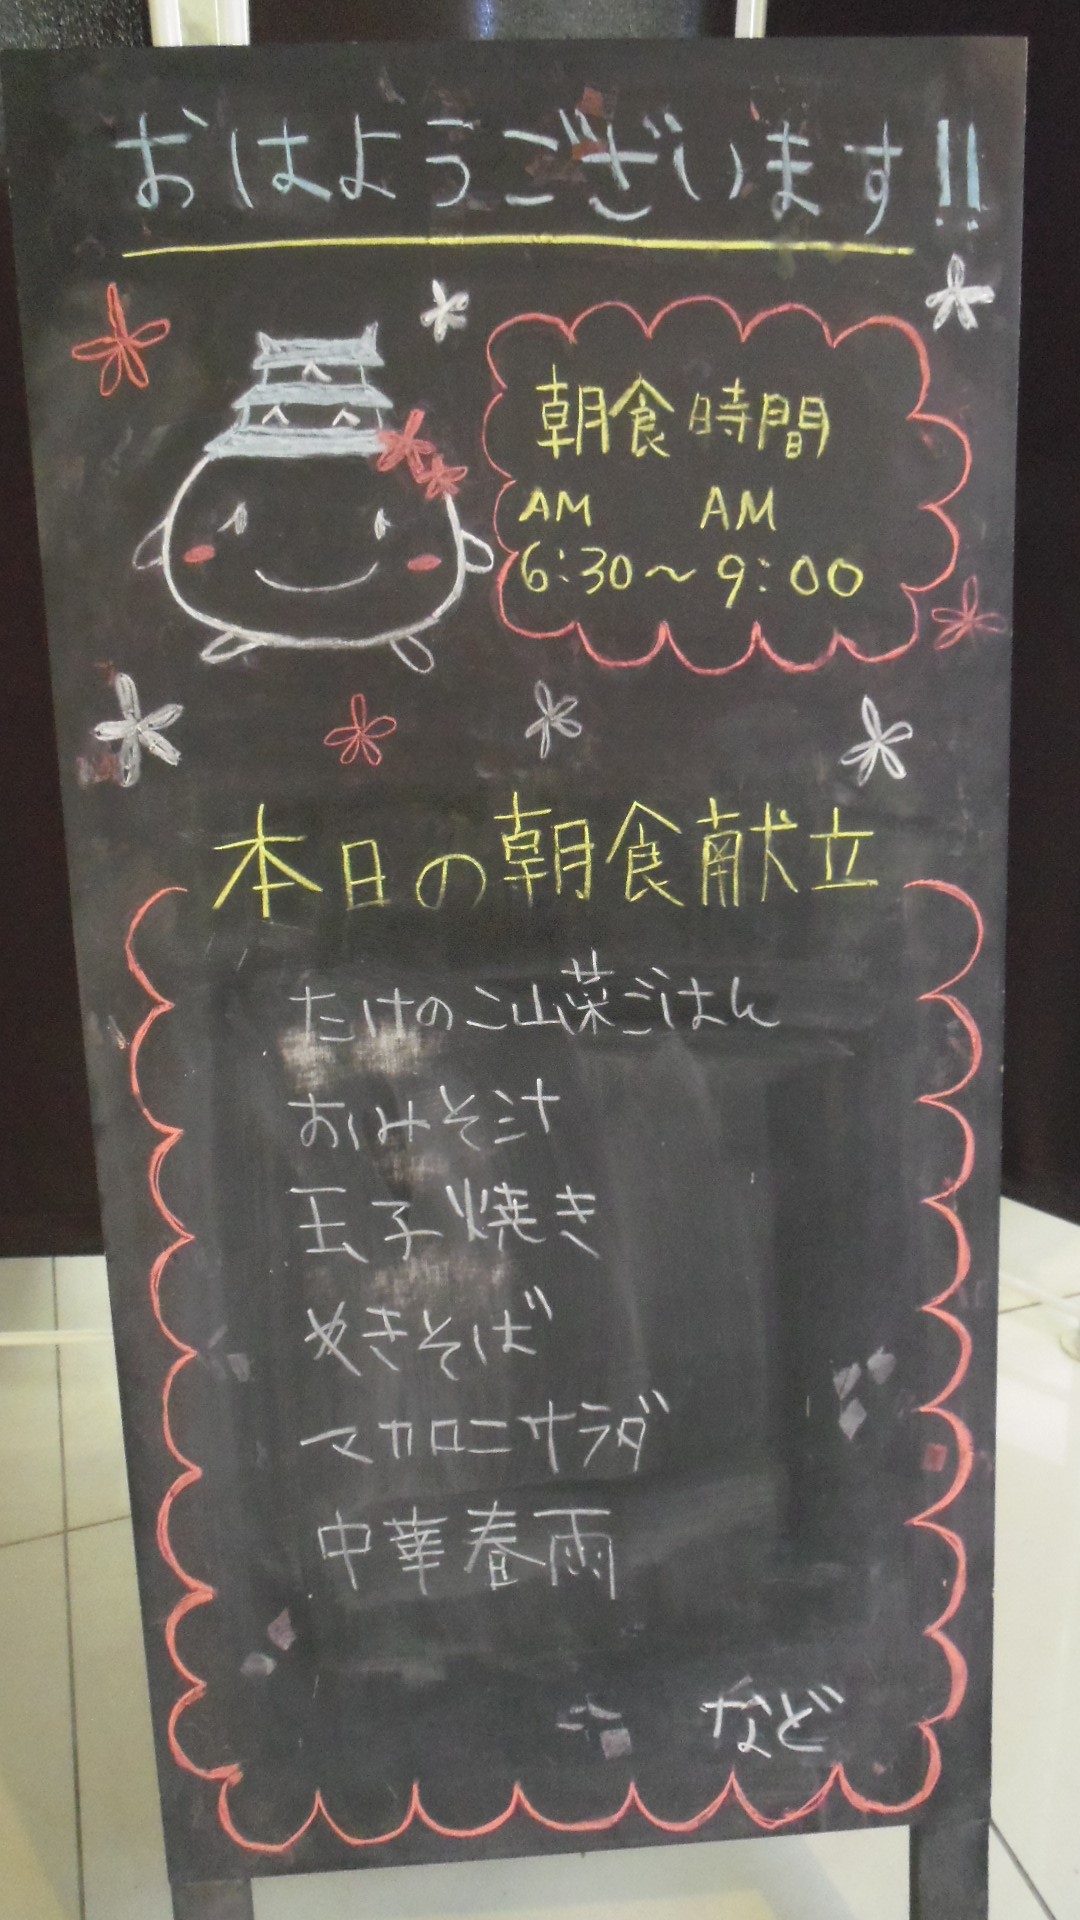 おはようございます!!
朝食時間
AM AM
6:30～9:00
本日の朝食献立
たけのこ山菜ごはん
おみそ汁
玉子焼き
やきそば
マカロニサラダ
中華春雨
など